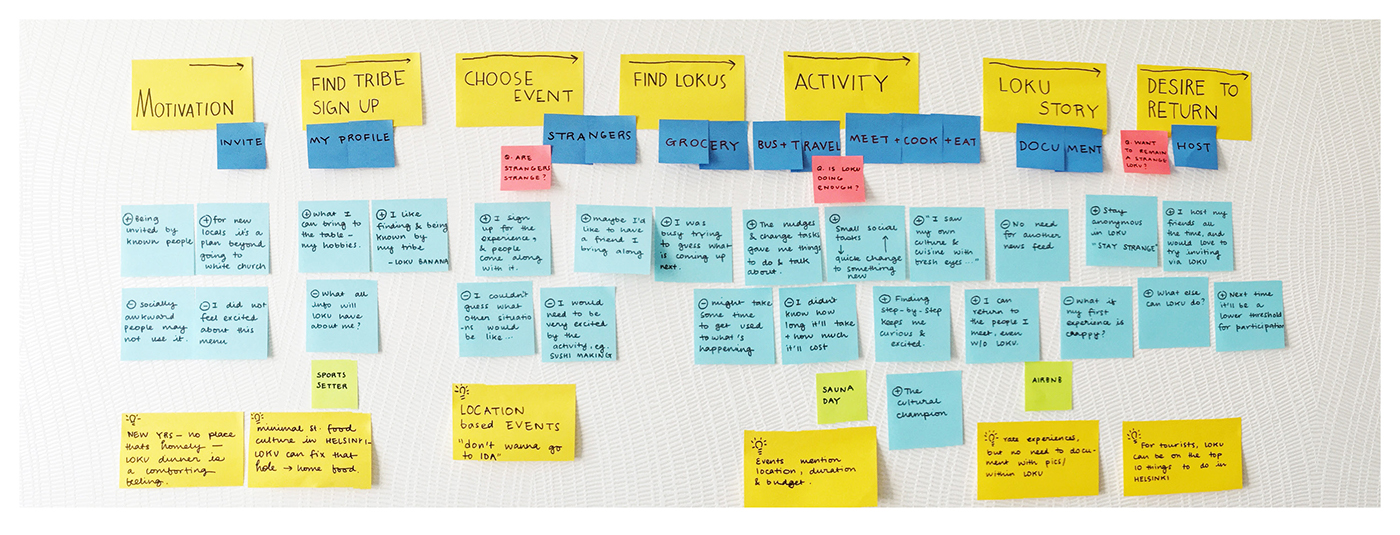 MOTIVATION
FIND TRIBE
SIGN UP
CHOOSE
EVENT
FIND LOKUS
ACTIVITY
LOKU
STORY
DESIRE TO
RETURN
INVITE
MY PROFILE
STRANGERS
GROCERY
BUS + TRAVEL
MEET + COOK + EAT
DOCUMENT
HOST
Q. ARE
STRANGERS
STRANGE?
Q. IS LOKU
DOING
ENOUGH?
Q. WANT
TO REMAIN
A STRANGE
LOKU?
+ Being
invited by
known people
+ for new
locals it's a
plan beyond
going to
white church
+ What I
can bring to
the table -
my hobbies.
+ I like
finding & being
known by
my tribe
- LOKU BANANA
+ I sign
up for the
experience,
& people
come along
with it.
+ maybe I'd
like to have
a friend I
bring along
+ I was
busy trying
to guess what
is coming up
next.
+ The nudges
& change tasks
gave me things
to do & talk
about.
+
Small social
tasks ↑
↓
quick change
to something
new
+ "I saw
my own
culture &
cuisine with
fresh eyes..."
- No need
for another
news feed
+ Stay
anonymous
in LOKU
"STAY STRANGE"
+ I host my
friends all
the time, and
would love to
try inviting
via LOKU
- Socially
awkward
people may
not use it.
- I did not
feel excited
about this
menu
- What all
info will
LOKU have
about me?
- I couldn't
guess what
other situatio
-ns would
be like...
- I would
need to be
very excited
by the
activity, eg.
SUSHI MAKING
- might take
some time
to get used
to what's
happening
- I didn't
know how
long it'll take
+ how much
it'll cost
+ Finding
step-by-step
keeps me
curious &
excited.
+ I can
return to
the people I
meet, even
w/o LOKU.
- What if
my first
experience is
crappy?
+ What else
can LOKU do?
+ Next time
it'll be a
lower threshold
for participation
SPORTS
SETTER
SAUNA
DAY
+ The
cultural
champion
AIRBNB
NEW YRS - no place
thats homely -
LOKU dinner is
a comforting
feeling.
minimal st. food
culture in HELSINKI-
LOKU can fix that
hole → home food.
LOCATION
based EVENTS
"don't wanna go
to IDA"
Events mention
location, duration
& budget.
rate experiences,
but no need to docu-
ment with pics/
within LOKU
For tourists, LOKU
can be on the top
10 things to do in
HELSINKI